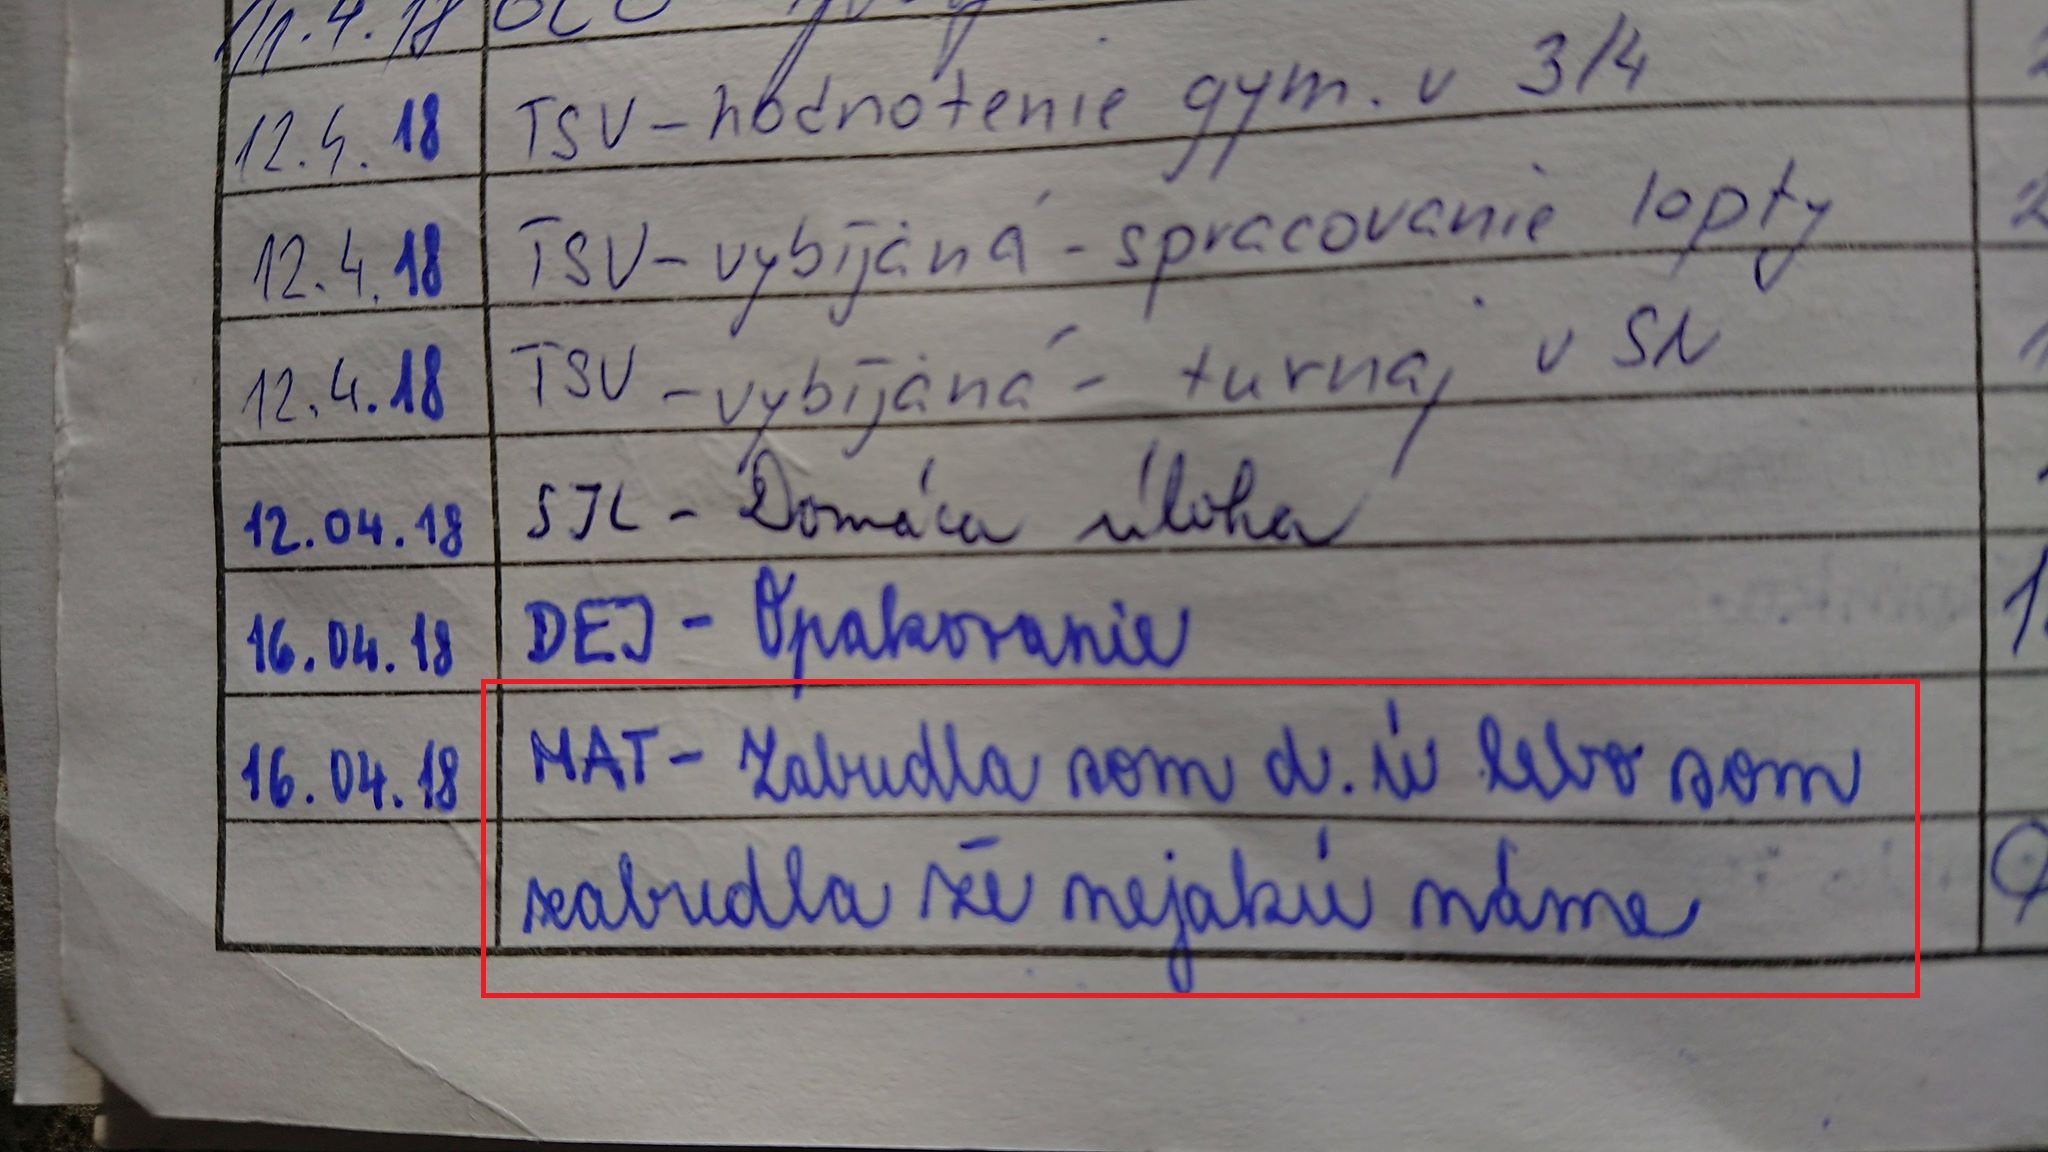 11.4.18
12.4.18 TSV - hodnotenie gym. v 3/4
12.4.18 TSV - vybíjaná - spracovanie lopty
12.4.18 TSV - vybíjaná - turnaj v SN
12.04.18 SJL - Domáca úloha
16.04.18 DEJ - Opakovanie
16.04.18 MAT - Zabudla som d. ú lebo som
zabudla že nejakú máme